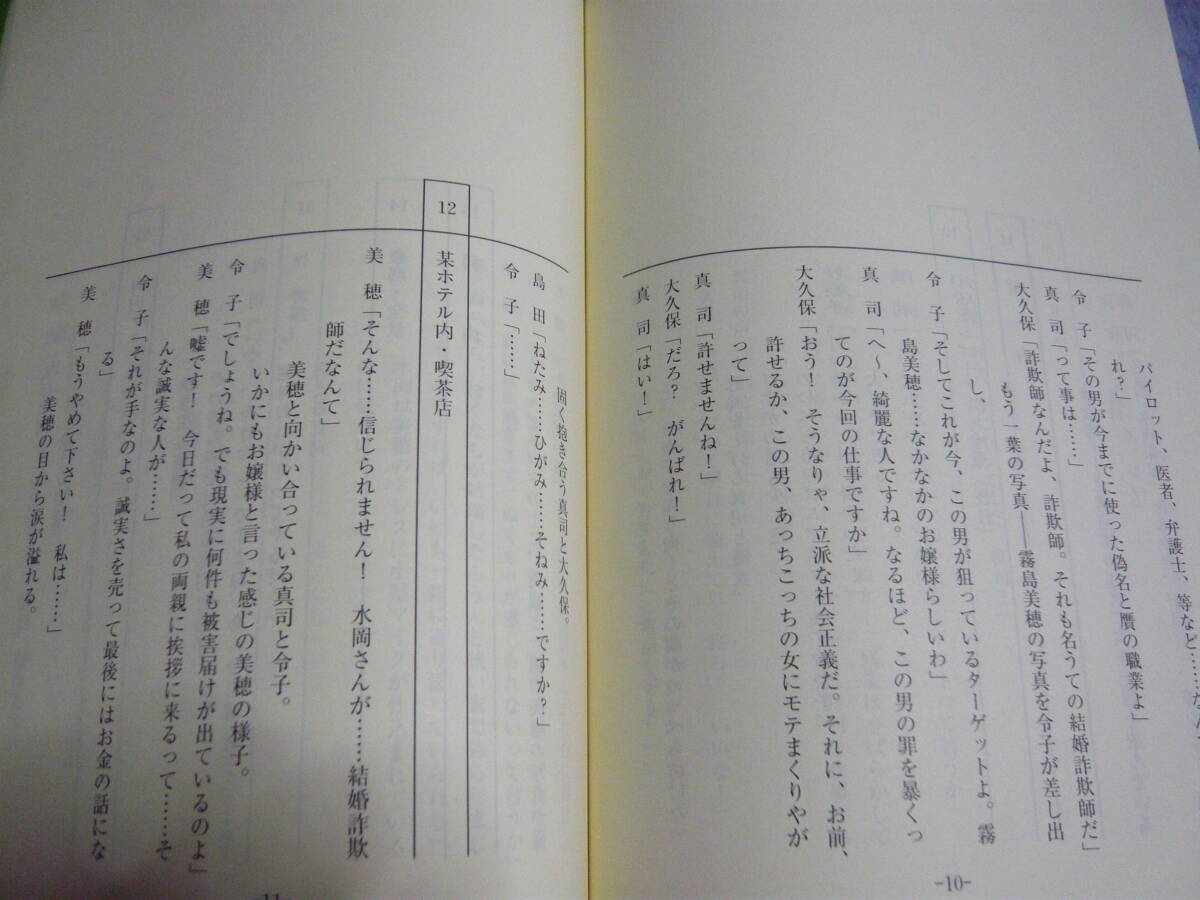 パイロット、医者、弁護士、等など……なん
れ？」
令　子「その男が今までに使った偽名と贋の職業よ」
真　司「って事は……」
大久保「詐欺師なんだよ、詐欺師。それも名うての結婚詐欺師だ」
もう一葉の写真――霧島美穂の写真を令子が差し出
し、
令　子「そしてこれが今、この男が狙っているターゲットよ。霧
島美穂……なかなかのお嬢様らしいわ」
真　司「へ〜、綺麗な人ですね。なるほど、この男の罪を暴くっ
てのが今回の仕事ですか」
大久保「おう！　そうなりゃ、立派な社会正義だ。それに、お前、
許せるか、この男、あっちこっちの女にモテまくりやが
って」
真　司「許せませんね！」
大久保「だろ？　がんばれ！」
真　司「はい！」
-10-
固く抱き合う真司と大久保。
島　田「ねたみ……ひがみ……そねみ……ですか？」
令　子「……」
12　某ホテル内・喫茶店
美　穂「そんな……信じられません！　水岡さんが……結婚詐欺
師だなんて」
美穂と向かい合っている真司と令子。
いかにもお嬢様と言った感じの美穂の様子。
令　子「でしょうね。でも現実に何件も被害届けが出ているのよ」
美　穂「嘘です！　今日だって私の両親に挨拶に来るって……そ
んな誠実な人が……」
令　子「それが手なのよ。誠実さを売って最後にはお金の話にな
る」
美　穂「もうやめて下さい！　私は……」
美穂の目から涙が溢れる。